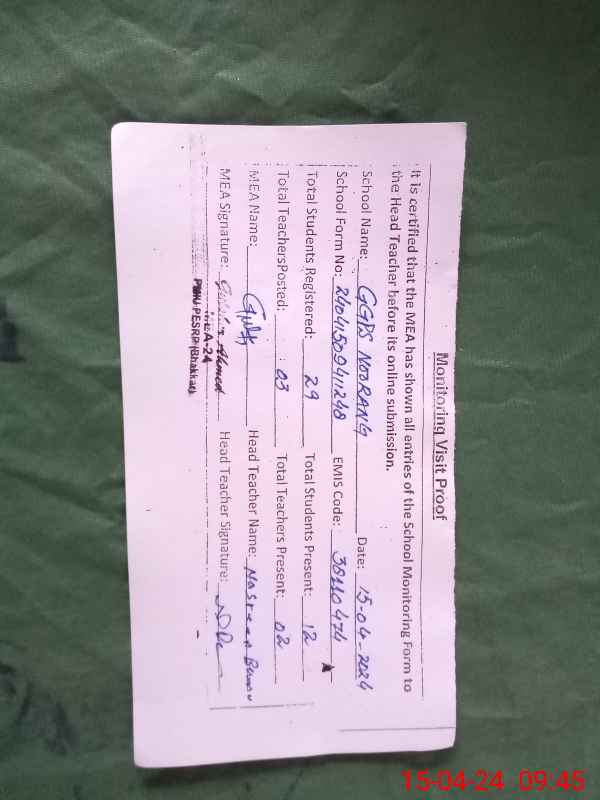 Monitoring Visit Proof
It is certified that the MEA has shown all entries of the School Monitoring Form to
the Head Teacher before its online submission.
School Name: GGPS NOORANG Date: 15-04-2024
School Form No: 2404150941248 EMIS Code: 38110474
Total Students Registered: 29 Total Students Present: 12
Total TeachersPosted: 03 Total Teachers Present: 02
MEA Name: Head Teacher Name: Nasreen
MEA Signature: Ahmed Head Teacher Signature:
MEA-24
PMIU PESRP(Bhakkar)
15-04-24 09:45